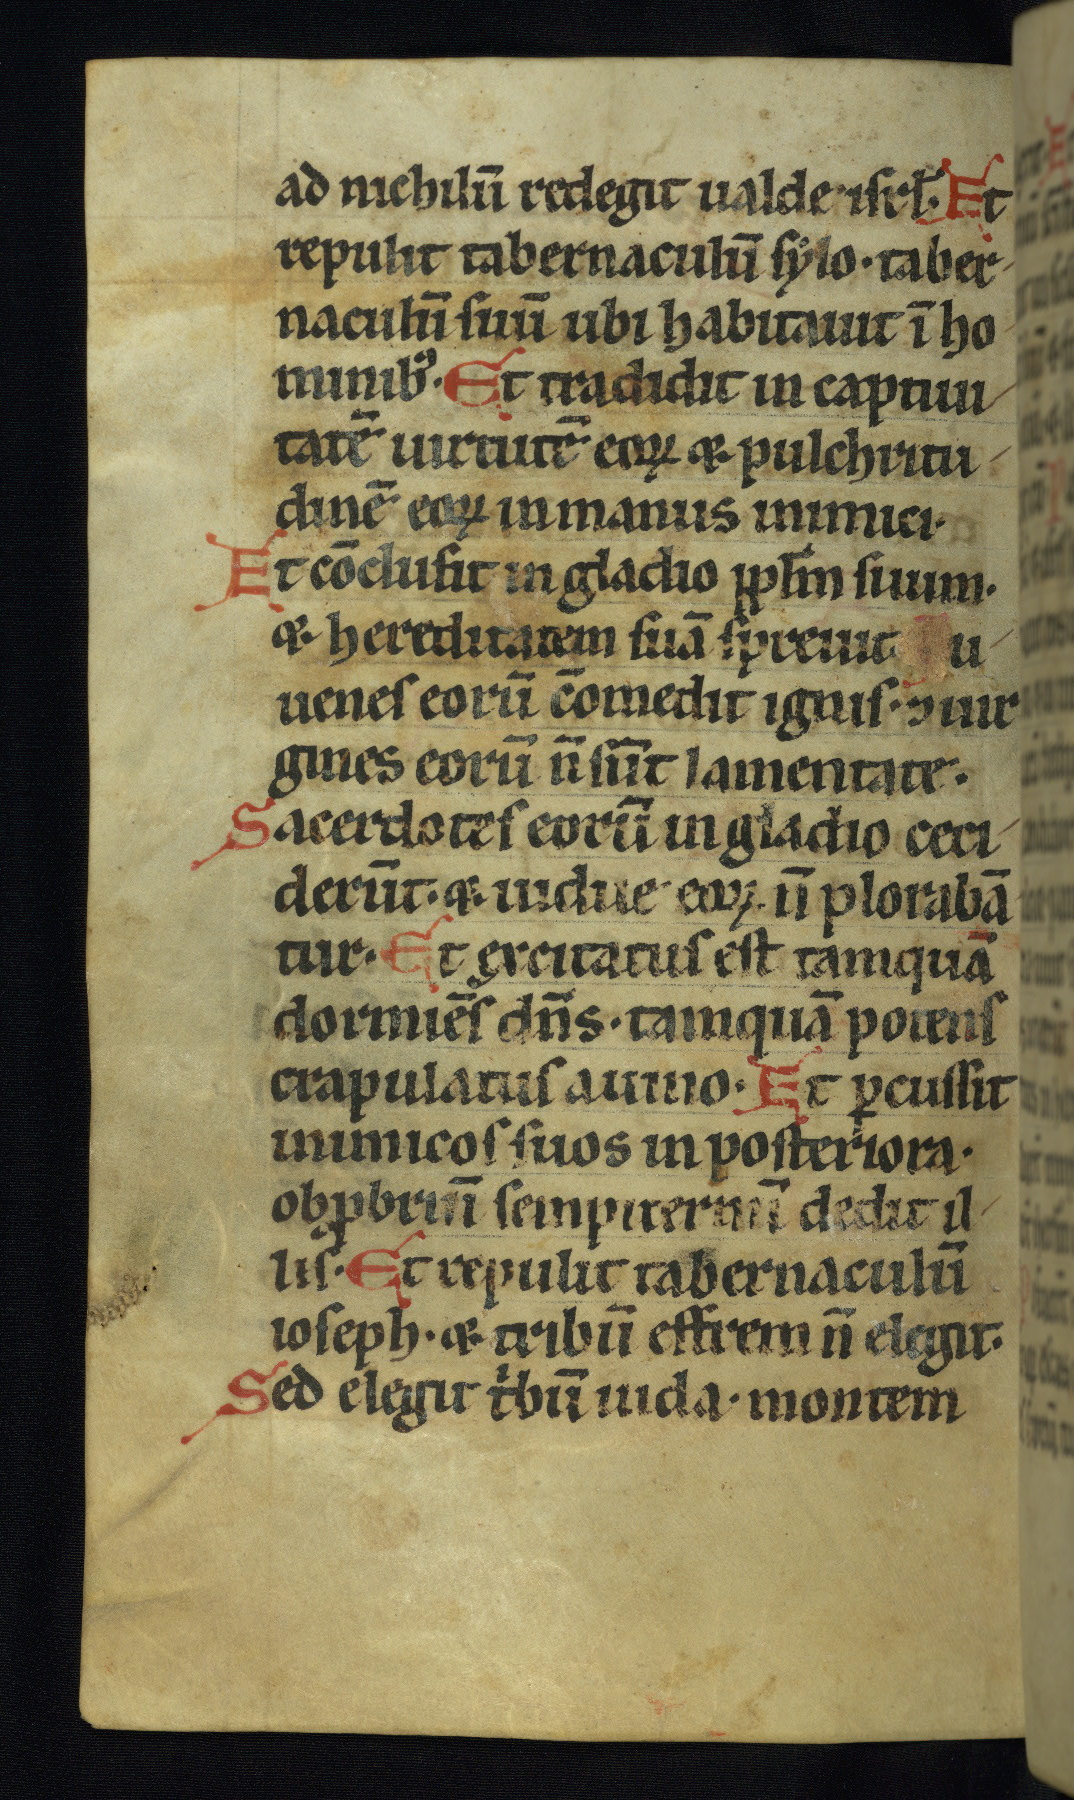 ad nichilū redegit ualde isrl̄. Et
repulit tabernaculū sẏlo. taber-
naculū suū ubi habitauit ī ho
minibꝰ. Et tradidit in captiui-
tatē uirtutē eoꝝ & pulchritu-
dinē eoꝝ in manus inimici.
Et cōclusit in gladio ppl̄m suum.
& hereditatem suā spreuit Iu-
uenes eorū c̄omedit ignis. ⁊ uir
gines eorū n̄ sūt lamentate.
Sacerdotes eorū in gladio ceci-
derūt. & uidue eoꝝ n̄ plorabā
tur. Et excitatus est tamquā
dormiēs dn̄s. tamquā potens
crapulatus a uino. Et ꝑcussit
inimicos suos in posteriora.
obꝓbriū sempiternū dedit il-
lis. Et repulit tabernaculū
ioseph. & tribū effrem n̄ elegit.
Sed elegit tͥbū iuda. montem